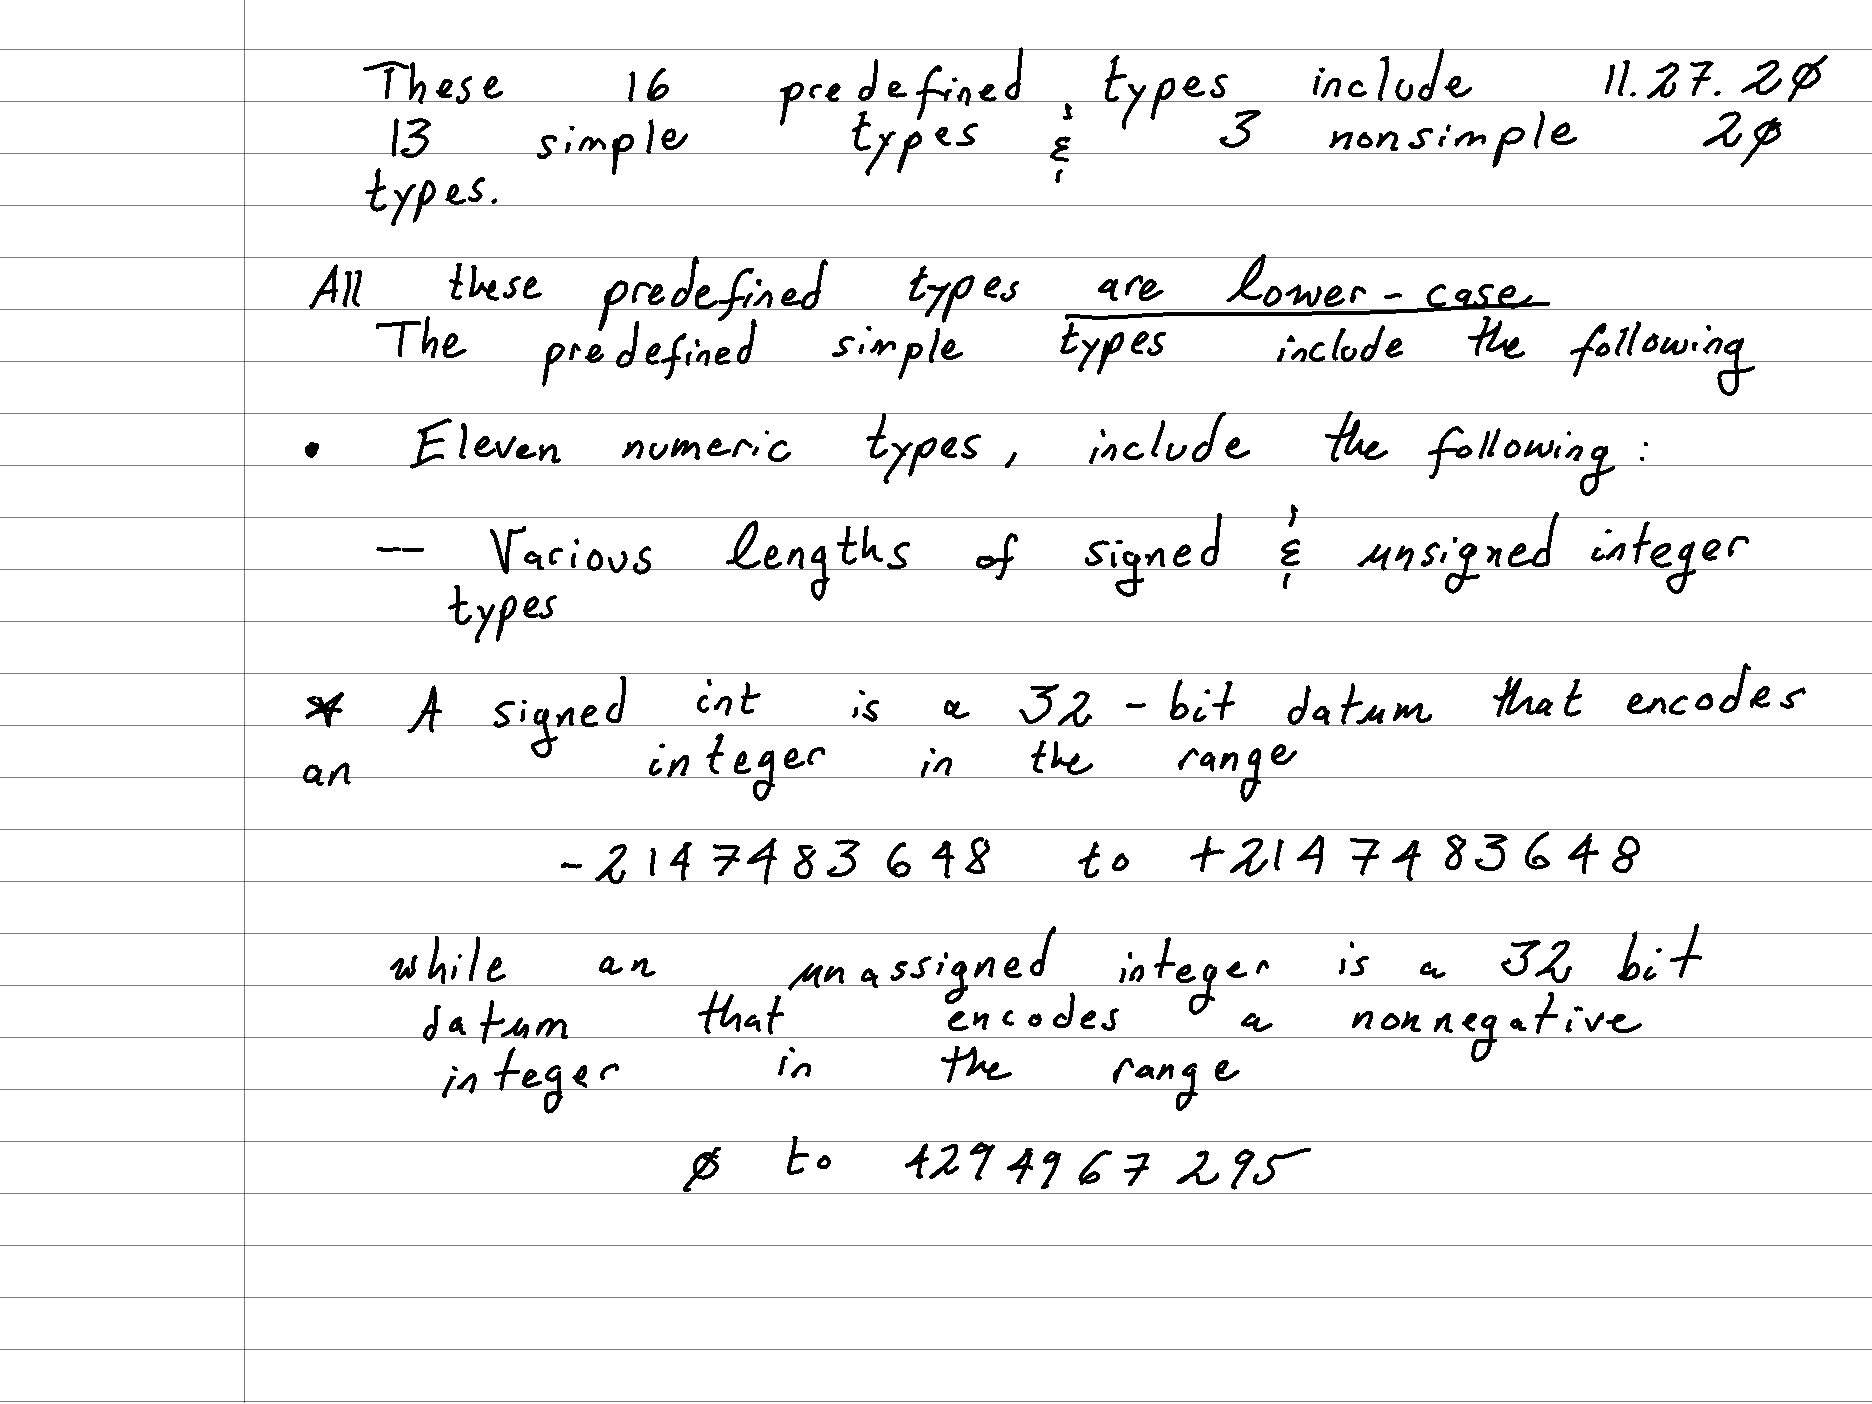 These 16 predefined types include 11.27.2ø
13 simple types & 3 nonsimple 2ø
types.
All these predefined types are lower-case
The predefined simple types include the following
• Eleven numeric types, include the following:
— Various lengths of signed & unsigned integer
types
* A signed int is a 32-bit datum that encodes
an integer in the range
-2147483648 to +2147483648
while an unassigned integer is a 32 bit
datum that encodes a nonnegative
integer in the range
ø to 4294967295